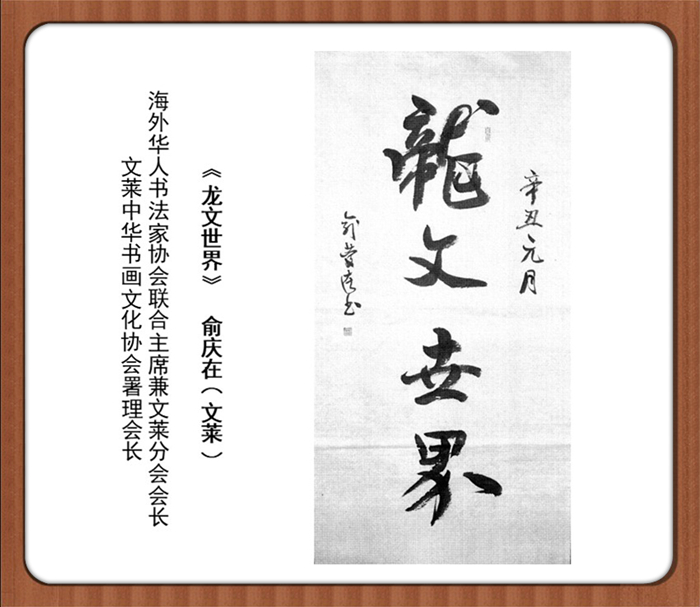 辛丑元月
龍文世界
《龙文世界》 俞庆在（文莱）
海外华人书法家协会联合主席兼文莱分会会长
文莱中华书画文化协会署理会长